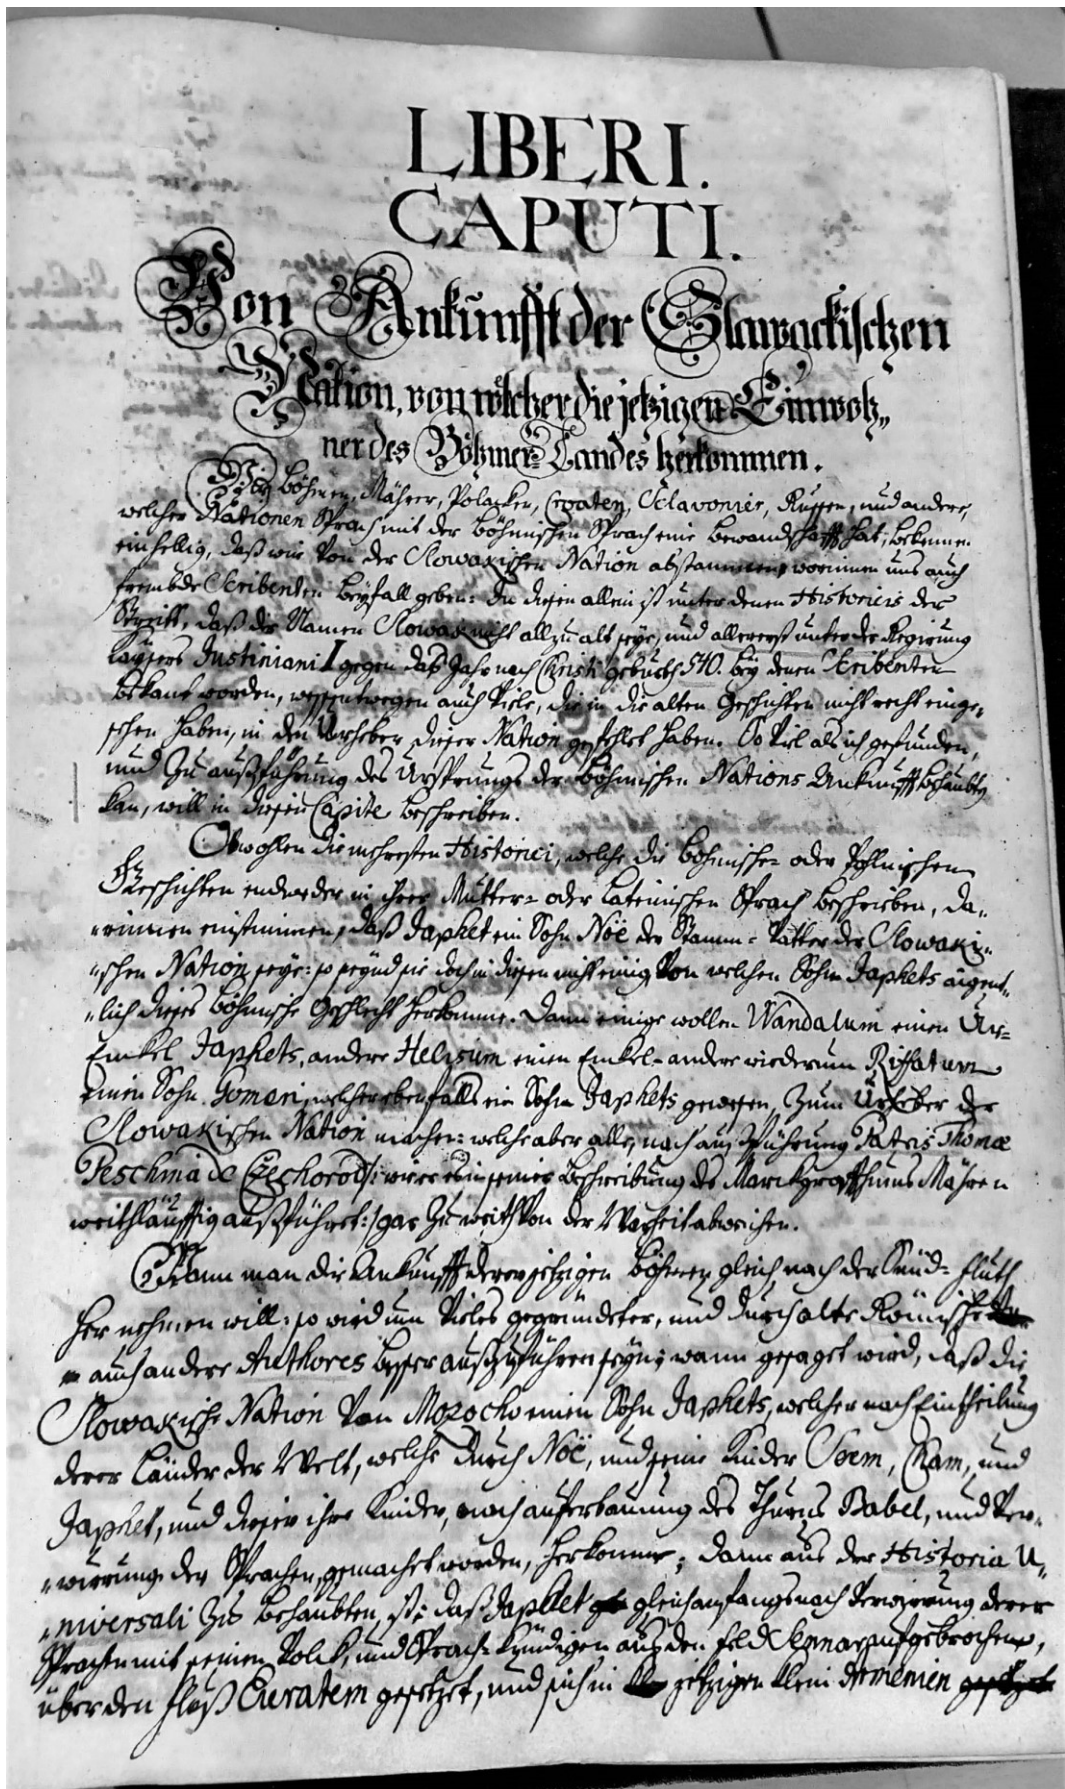 LIBER I.
CAPUT I.
Von Ankunfft der Slawackischen
Nation, von welcher die jetzigen Einwoh„
ner des Böhmer= Landes herkommen.
Wir Böhmen, Mährer, Polacken, Croaten, Sclavonier, Russen, und andere,
welcher Nationen Sprach mit der Böhmischen Sprach eine Bewandschafft hat, bekennen
einhellig, daß wir von der Slowakischen Nation abstammen, worinnen uns auch
frembde Scribenten Beyfall geben: In diesen allein ist unter denen Historicis der
Streitt, daß der Namen Slowak nicht allzu alt seye, und allererst unter der Regierung
Kaysers Justiniani I gegen das Jahr nach Christi Geburth 540. bey denen Scribenten
bekant worden, wessentwegen auch viele, die in die alten Geschichten nicht recht einge„
sehen haben, in den Urheber dieser Nation gefehlet haben. So viel als ich gefunden,
und zu außführung des Ursprungs der Böhmischen Nations Ankunfft behaubten
kan, will in diesen Capite beschreiben.
Obwohlen die mehresten Historici, welche die Böhmische= oder Pohlnischen
Geschichten endweder in ihrer Mutter= oder Lateinischen Sprach beschrieben, da„
„rinnen einstimmen, daß Japhet ein Sohn Nöe der Stamm= Vatter der Slowaki„
„schen Nation seye: so seynd sie doch in diesen nicht einig, von welchen Sohn Japhets aigent„
„lich dieses Böhmische Geschlecht herkomme. Dann einige wollen Wandalum einen Ur=
Enckel Japhets, andere Helisum einen Enckel= andere wiederum Riffatum
einen Sohn Gomeri, welcher ebenfalls ein Sohn Japhets gewesen, zum Urheber der
Slowakischen Nation machen: welche aber alle, nach auß Führung Patris Thomæ
Peschina de Czechorod /: wie er es in seiner Beschreibung des Marckgraffthums Mähren
weithläuffig außführet :/ gar zu weith von der Warheit abweichen.
Wann man die Ankunfft deren jetzigen Böhmen gleich nach der Sünd= Fluth
her nehmen will: so wird um vieles gegründeter, und durch alte Römische
auch andere Authores besser außzuführen seyn; wann gesaget wird, daß die
Slowakische Nation von Mozocho einen Sohn Japhets, welcher nach Eintheilung
derer Länder der Welt, welche durch Nöe, und seine Kinder Seem, Cham, und
Japhet, und dieser ihre Kinder, nach auferbauung des Thurns Babel, und Ver„
„wirrung der Sprachen, gemachet worden, herkomme; dann aus der Historia U„
„niversali zu behaubten, ist: daß Japhet gleich anfangs nach Verwirrung derer
Sprachen mit seinen Volck, und Sprach= Kündigen aus den Feld Sennar aufgebrochen,
über den Fluß Euratem gesetzet, und sich in jetzigen klein Armenien